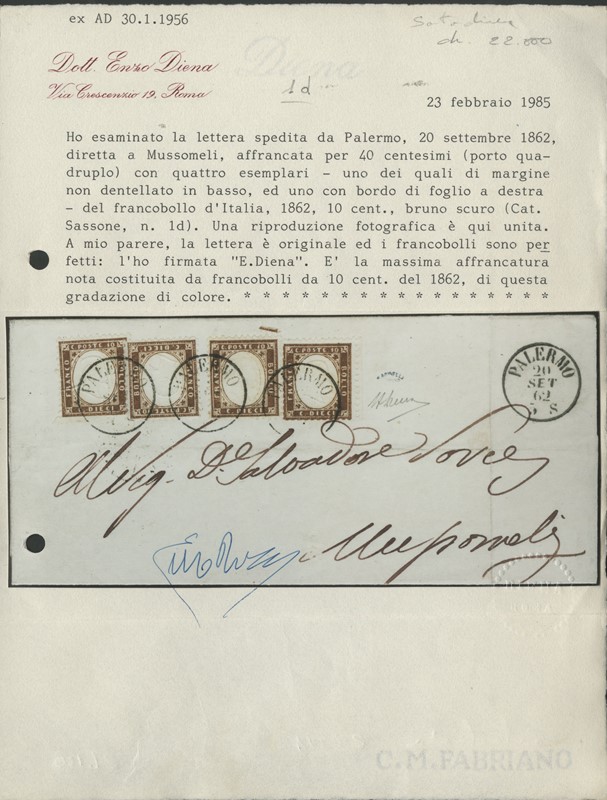 ex AD 30.1.1956
22.000
Dott. Enzo Diena
Diena
Via Crescenzio 19, Roma
1d
23 febbraio 1985
Ho esaminato la lettera spedita da Palermo, 20 settembre 1862,
diretta a Mussomeli, affrancata per 40 centesimi (porto qua-
druplo) con quattro esemplari - uno dei quali di margine
non dentellato in basso, ed uno con bordo di foglio a destra
- del francobollo d'Italia, 1862, 10 cent., bruno scuro (Cat.
Sassone, n. 1d). Una riproduzione fotografica è qui unita.
A mio parere, la lettera è originale ed i francobolli sono per
fetti: l'ho firmata "E.Diena". E' la massima affrancatura
nota costituita da francobolli da 10 cent. del 1862, di questa
gradazione di colore. * * * * * * * * * * * * * * * * * *
C. POSTE 10 C. POSTE 10 C. POSTE 10 C. POSTE 10
FRANCO BOLLO FRANCO BOLLO FRANCO BOLLO FRANCO BOLLO
C. DIECI C. DIECI C. DIECI C. DIECI
PALERMO PALERMO PALERMO
PALERMO
20
SET
62
5 S
Al Sig. Dr. Salvadore
Mussomeli
C.M.FABRIANO